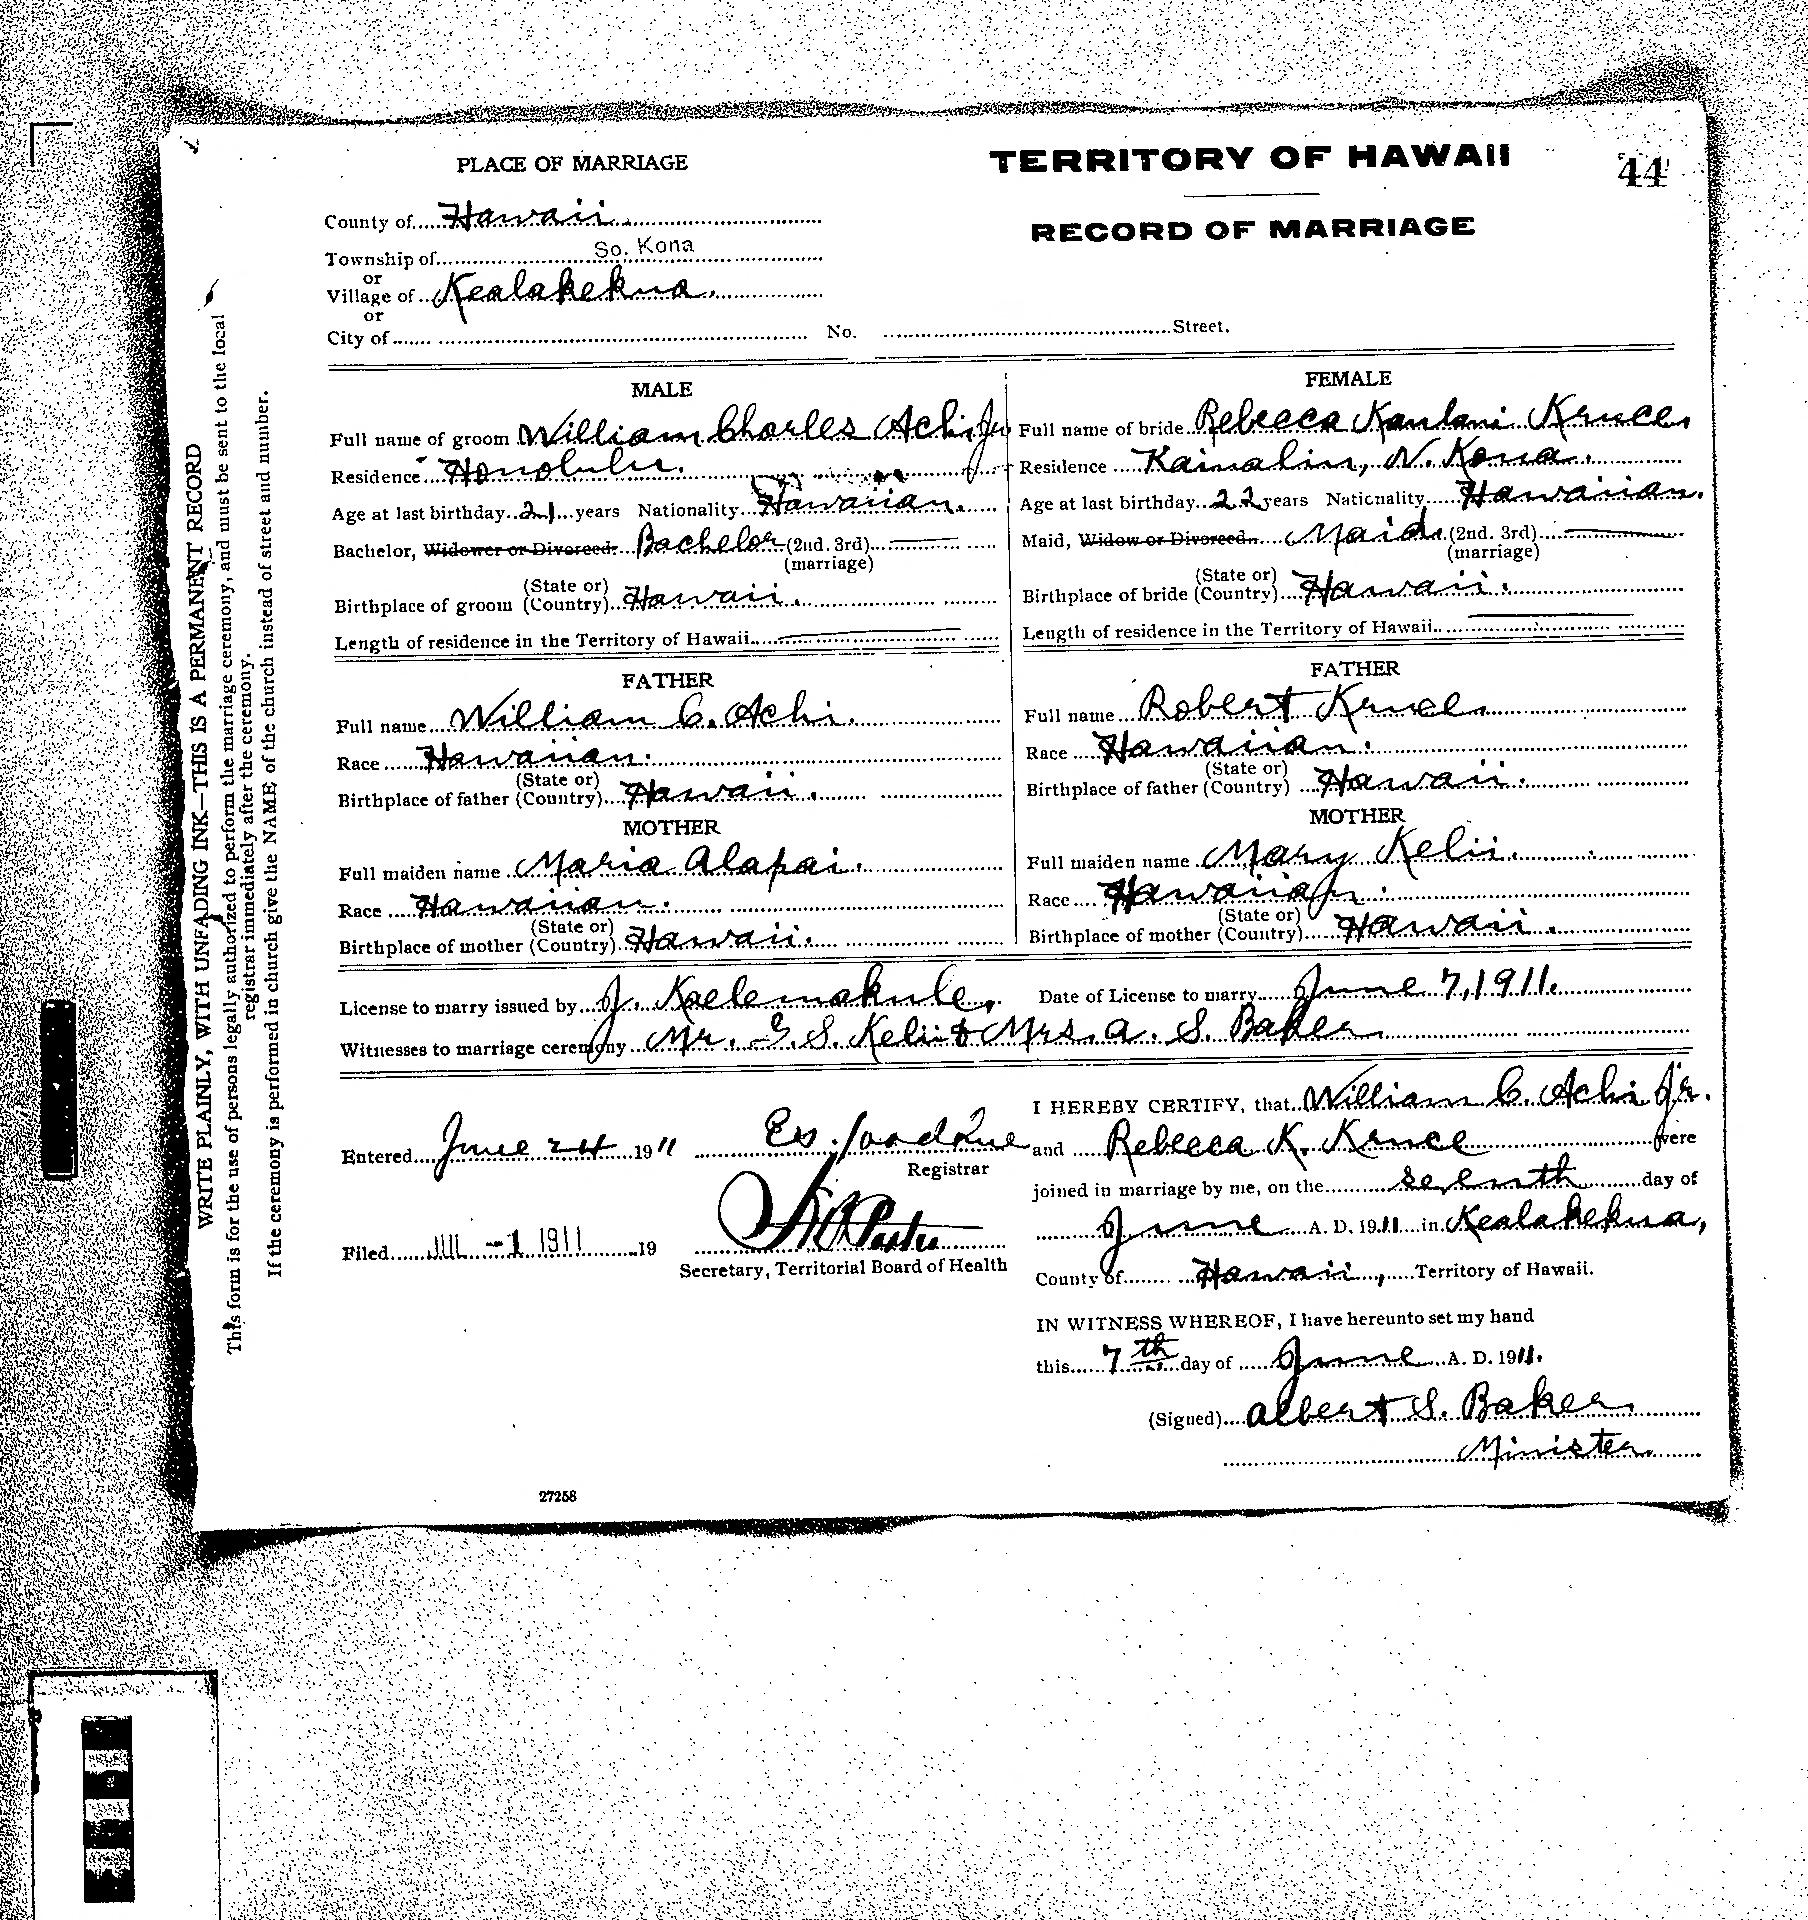 TERRITORY OF HAWAII
44
RECORD OF MARRIAGE
PLACE OF MARRIAGE
County of Hawaii
Township of So. Kona
or
Village of Kealakekua.
or
City of No. Street.
MALE
Full name of groom William Charles Achi, Jr.
Residence Honolulu.
Age at last birthday 21 years Nationality Hawaiian.
Bachelor, Widower or Divorced. Bachelor (2nd. 3rd)
(marriage)
(State or)
Birthplace of groom (Country) Hawaii.
Length of residence in the Territory of Hawaii
FATHER
Full name William C. Achi.
Race Hawaiian.
(State or)
Birthplace of father (Country) Hawaii.
MOTHER
Full maiden name Maria Alapai.
Race Hawaiian.
(State or)
Birthplace of mother (Country) Hawaii.
FEMALE
Full name of bride Rebecca Kaulani Kruce.
Residence Kainaliu, N. Kona.
Age at last birthday 22 years Nationality Hawaiian.
Maid, Widow or Divorced. Maid. (2nd. 3rd)
(marriage)
(State or)
Birthplace of bride (Country) Hawaii.
Length of residence in the Territory of Hawaii
FATHER
Full name Robert Kruce.
Race Hawaiian.
(State or)
Birthplace of father (Country) Hawaii.
MOTHER
Full maiden name Mary Kelii.
Race Hawaiian.
(State or)
Birthplace of mother (Country) Hawaii.
License to marry issued by J. Kaelemakule. Date of License to marry June 7, 1911.
Witnesses to marriage ceremony Mr. G. S. Kelii & Mrs. A. S. Baker.
Entered June 24 1911
Registrar
Filed JUL -1 1911 19
Secretary, Territorial Board of Health
I HEREBY CERTIFY, that William C. Achi Jr.
and Rebecca K. Kruce were
joined in marriage by me, on the seventh day of
June A. D. 1911 in Kealakekua,
County of Hawaii, Territory of Hawaii.
IN WITNESS WHEREOF, I have hereunto set my hand
this 7th day of June A. D. 1911.
(Signed) Albert S. Baker.
Minister.
27258
WRITE PLAINLY, WITH UNFADING INK—THIS IS A PERMANENT RECORD
This form is for the use of persons legally authorized to perform the marriage ceremony, and must be sent to the local
registrar immediately after the ceremony.
If the ceremony is performed in church give the NAME of the church instead of street and number.